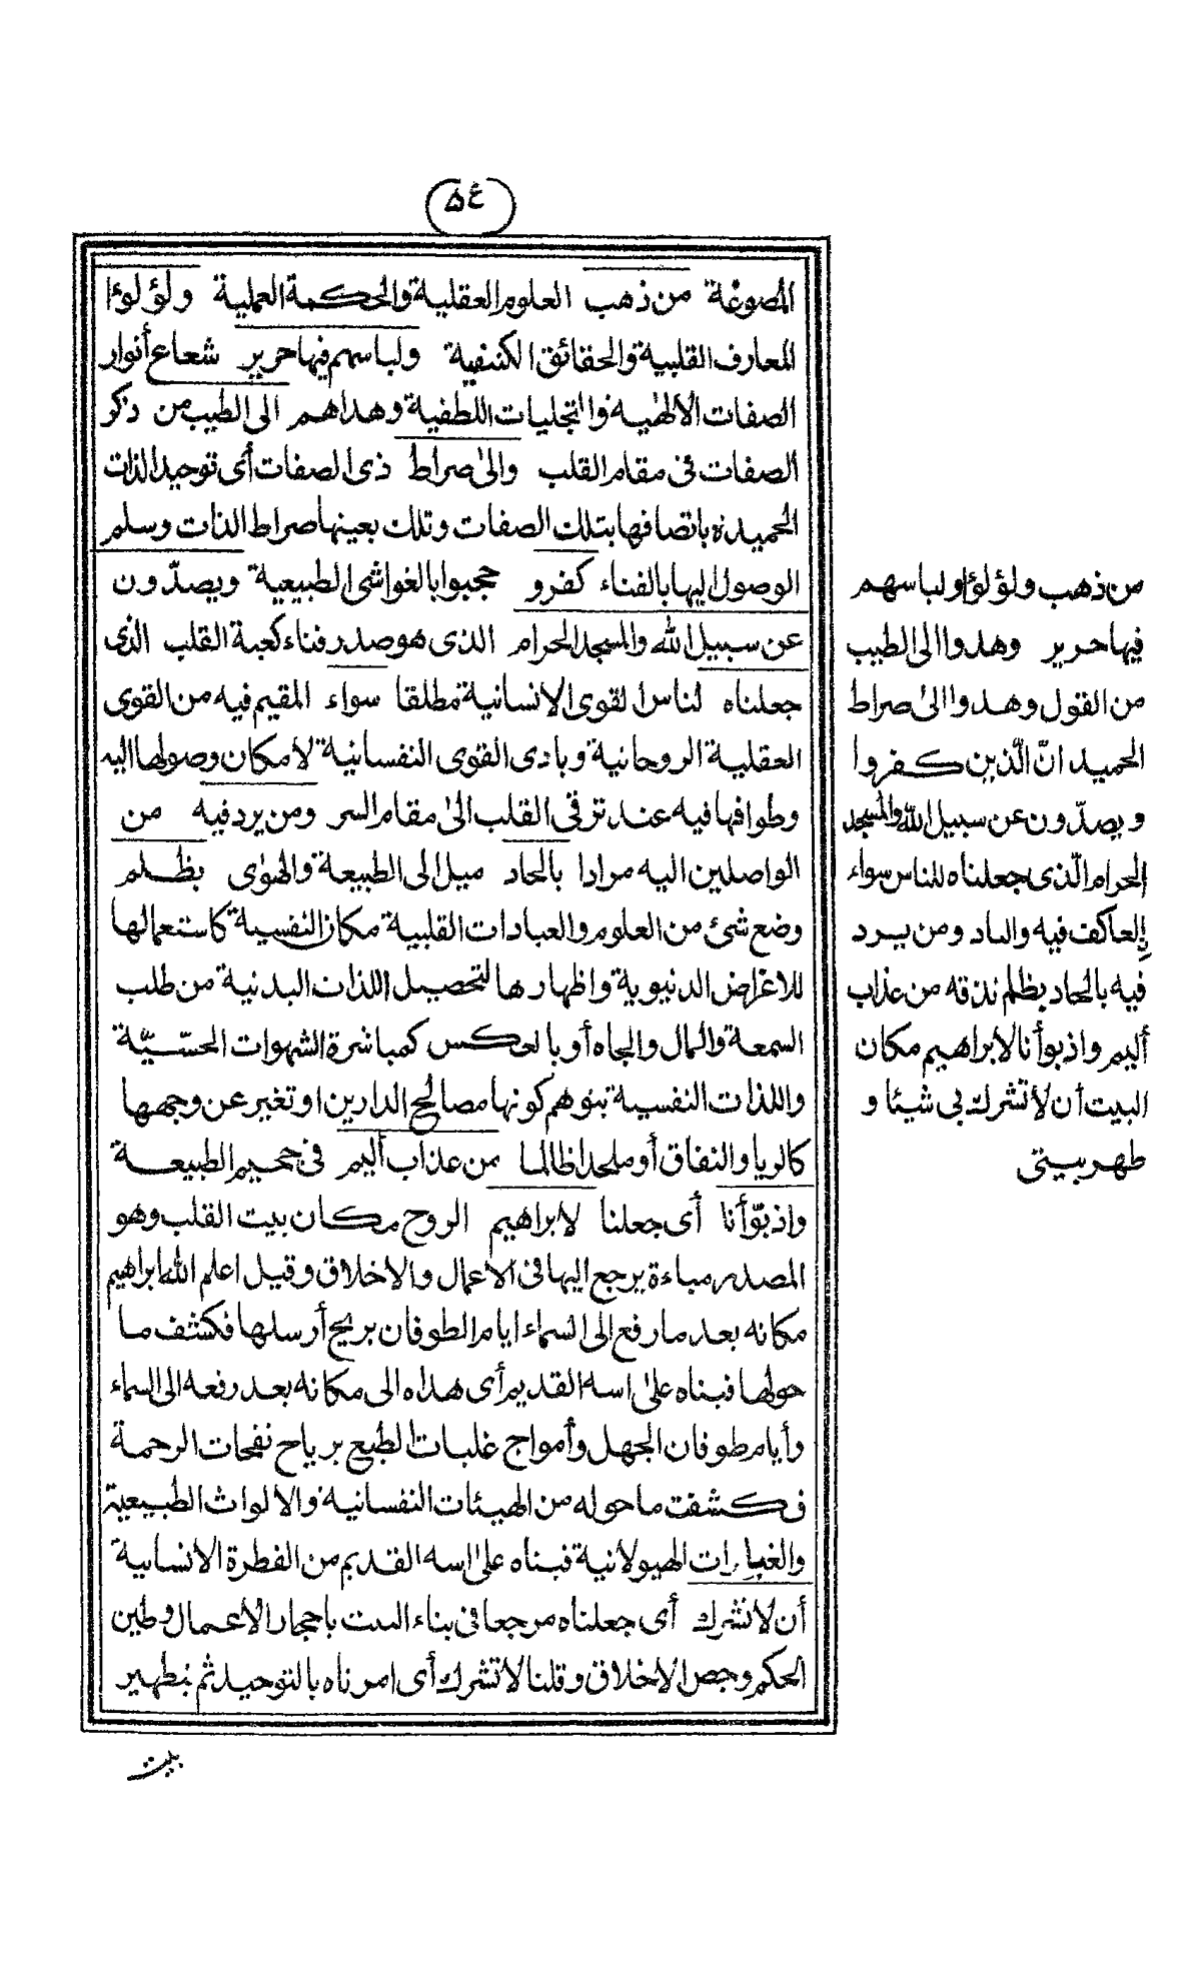 ٥٤
المصوغة من ذهب العلوم العقلية والحكمة العملية ولؤلوءا
المعارف القلبية والحقائق الكشفية ولباسهم فيها حرير شعاع أنوار
الصفات الالهية والتجليات اللطفية وهداهم الى الطيب من ذكر
الصفات فى مقام القلب والى صراط ذى الصفات أى توحيد الذات
الحميدة باتصافها بتلك الصفات وتلك بعينها صراط الذات وسلم
الوصول اليها بالفناء كفرو حجبوا بالغواشى الطبيعية ويصدّون
عن سبيل الله والمسجد الحرام الذى هو صدر فناء كعبة القلب الذى
جعلناه لناس القوى الانسانية مطلقا سواء المقيم فيه من القوى
العقلية الروحانية وبادى القوى النفسانية لامكان وصولها اليه
وطوافها فيه عند ترقى القلب الى مقام السر ومن يرد فيه من
الواصلين اليه مرادا بالحاد ميل الى الطبيعة والهوى بظلم
وضع شئ من العلوم والعبادات القلبية مكان النفسية كاستعمالها
للاغراض الدنيوية واظهارها لتحصيل اللذات البدنية من طلب
السمعة والمال والجاه أو بالعكس كمباشرة الشهوات الحسّيّة
واللذات النفسية بتوهم كونها مصالح الدارين او تغير عن وجهها
كالريا والنفاق أو ملحدا ظالما من عذاب أليم فى جحيم الطبيعة
واذ بوّأنا أى جعلنا لابراهيم الروح مكان بيت القلب وهو
المصدر مباءة يرجع اليها فى الاعمال والاخلاق وقيل اعلم الله ابراهيم
مكانه بعد ما رفع الى السماء ايام الطوفان بريح أرسلها فكشف ما
حولها فبناه على اسه القديم أى هداه الى مكانه بعد رفعه الى السماء
وأيام طوفان الجهل وأمواج غلبات الطبع برياح نفحات الرحمة
فكشفت ما حوله من الهيئات النفسانية والالواث الطبيعية
والغبارات الهيولانية فبناه على اسه القديم من الفطرة الانسانية
أن لا تشرك أى جعلناه مرجعا فى بناء البيت باحجار الاعمال وطين
الحكم وجص الاخلاق وقلنا لا تشرك أى امرناه بالتوحيد ثم بتطهير
بيت
من ذهب ولؤلؤا ولباسهم
فيها حرير وهدوا الى الطيب
من القول وهدوا الى صراط
الحميد انّ الّذين كفروا
ويصدّون عن سبيل الله والمسجد
الحرام الّذى جعلناه للناس سواء
العاكف فيه والباد ومن يرد
فيه بالحاد بظلم نذقه من عذاب
أليم واذ بوأنا لابراهيم مكان
البيت أن لا تشرك بى شيئا و
طهر بيتى